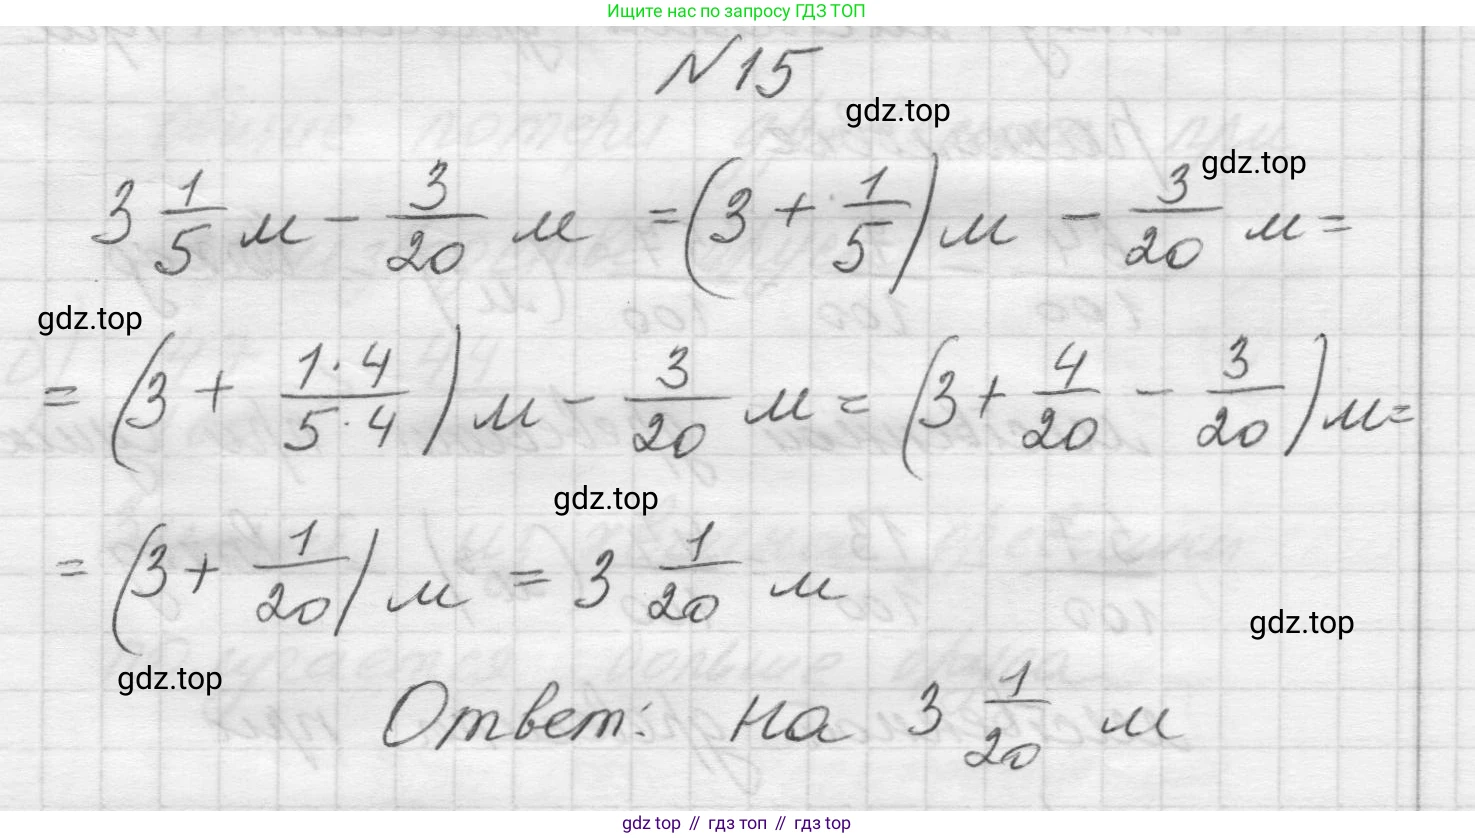 Ищите нас по запросу ГДЗ ТОП
№15
gdz.top
gdz.top
3 1/5 м - 3/20 м = (3 + 1/5) м - 3/20 м =
gdz.top
= (3 + 1·4/5·4) м - 3/20 м = (3 + 4/20 - 3/20) м =
gdz.top
= (3 + 1/20) м = 3 1/20 м
gdz.top
gdz.top
Ответ: на 3 1/20 м
gdz top // гдз топ // гдз top